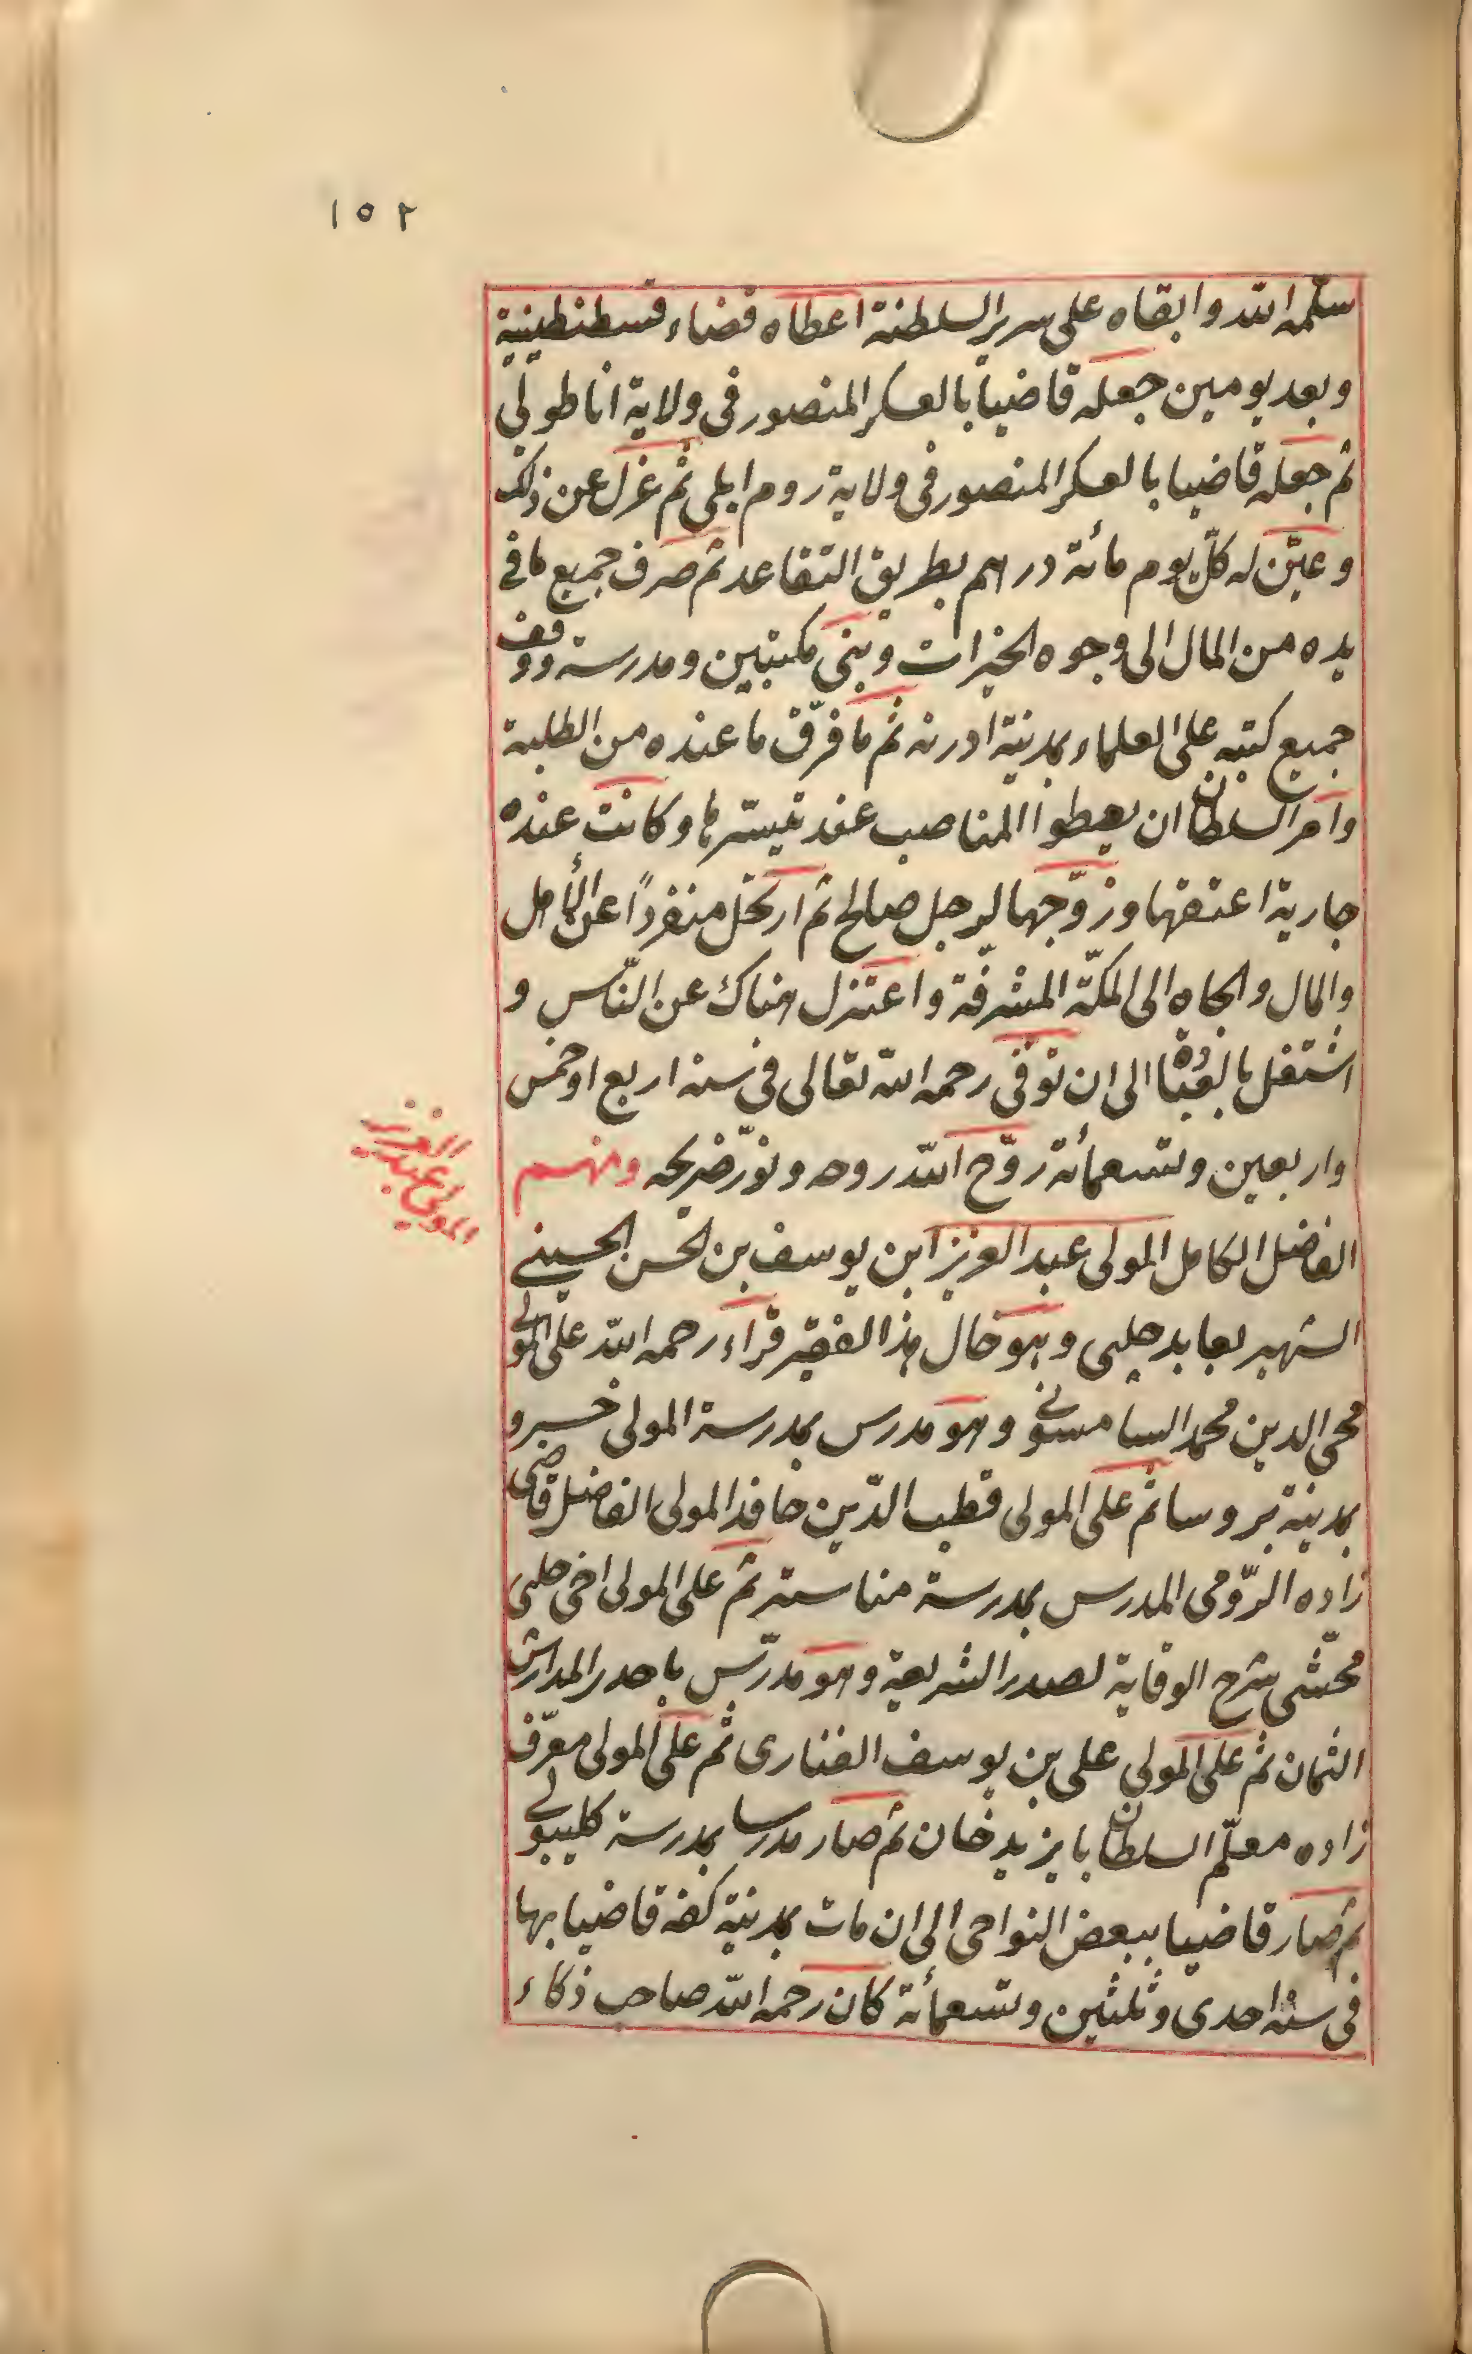 ١٥٢
سلّمه الله وابقاه على سرير السلطنة اعطاه قضاء قسطنطينية
وبعد يومين جعله قاضياً بالعسكر المنصور فى ولاية اناطولى
ثم جعله قاضيا بالعسكر المنصور فى ولاية روم ايلى ثم عزل عن ذلك
وعيّن له كلّ يوم مائة دراهم بطريق التقاعد ثم صرف جميع ما فى
يده من المال الى وجوه الخيرات وبنى مكتبين ومدرسة ووقف
جميع كتبه على العلماء بمدينة ادرنه ثم ما فرّق ما عنده من الطلبة
وامر السلطان ان يعطوا المناصب عند تيسّرها وكانت عنده
جارية اعتقها وزوّجها لرجل صالح ثم ارتحل منفرداً عن الأهل
والمال والجاه الى المكّة المشرفّة واعتزل هناك عن النّاس و
اشتغل بالعبادة الى ان توفّى رحمه الله تعالى فى سنه اربع او خمس
واربعين وتسعمائة روّح الله روحه ونوّر ضريحه ومنهم
المولى عبد العزيز
الفاضل الكامل المولى عبد العزيز ابن يوسف بن الحسن الحسينى
الشهير بعابد چلبى وهو خال هذا الفقير قراء رحمه الله على المولى
محى الدين محمد السامسونى وهو مدرس بمدرسة المولى خسرو
بمدينة بروسا ثم على المولى قطب الدّين حافد المولى الفاضل قاضى
زاده الرّومى المدرس بمدرسة مناستر ثم على المولى اخى چلبى
محشّى شرح الوقاية لصدر الشريعة وهو مدرّس باحدى المدارس
الثمان ثم على المولى على بن يوسف الفنارى ثم على المولى معرّف
زاده معلّم السلطان بايزيد خان ثم صار مدرسا بمدرسة كليبولى
ثم صار قاضيا ببعض النواحى الى ان مات بمدينة كفه قاضيا بها
فى سنه احدى وثلثين وتسعمأئة كان رحمه الله صاحب ذكاء